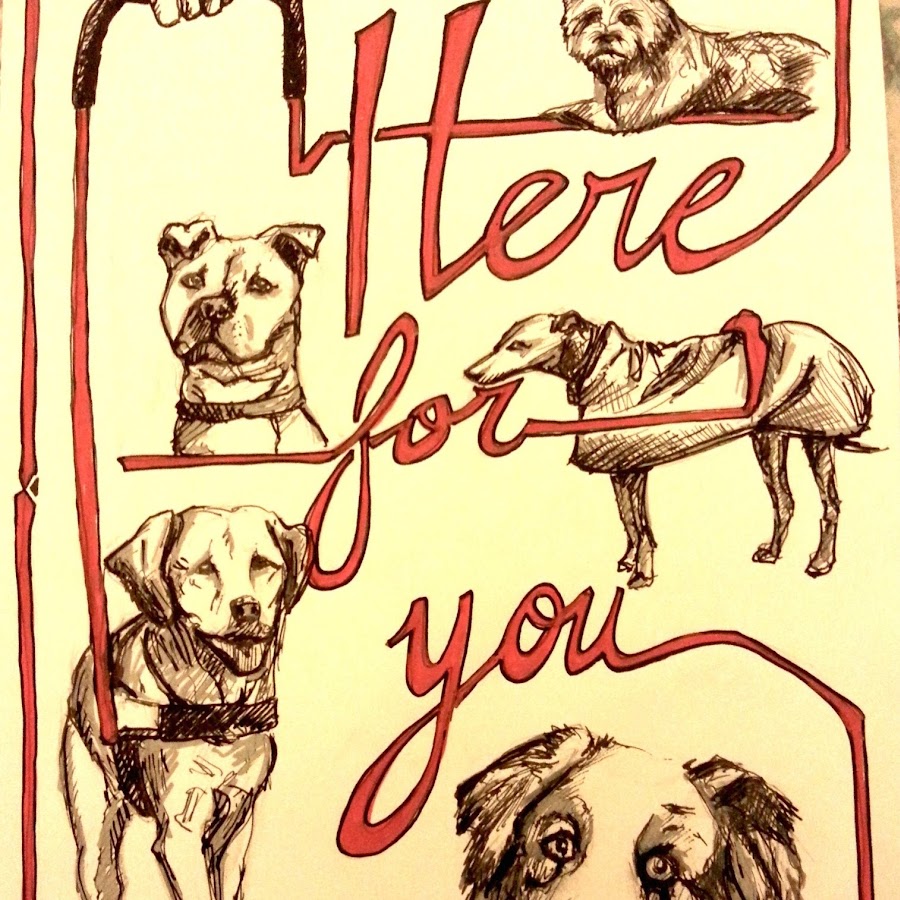 Here
for
you